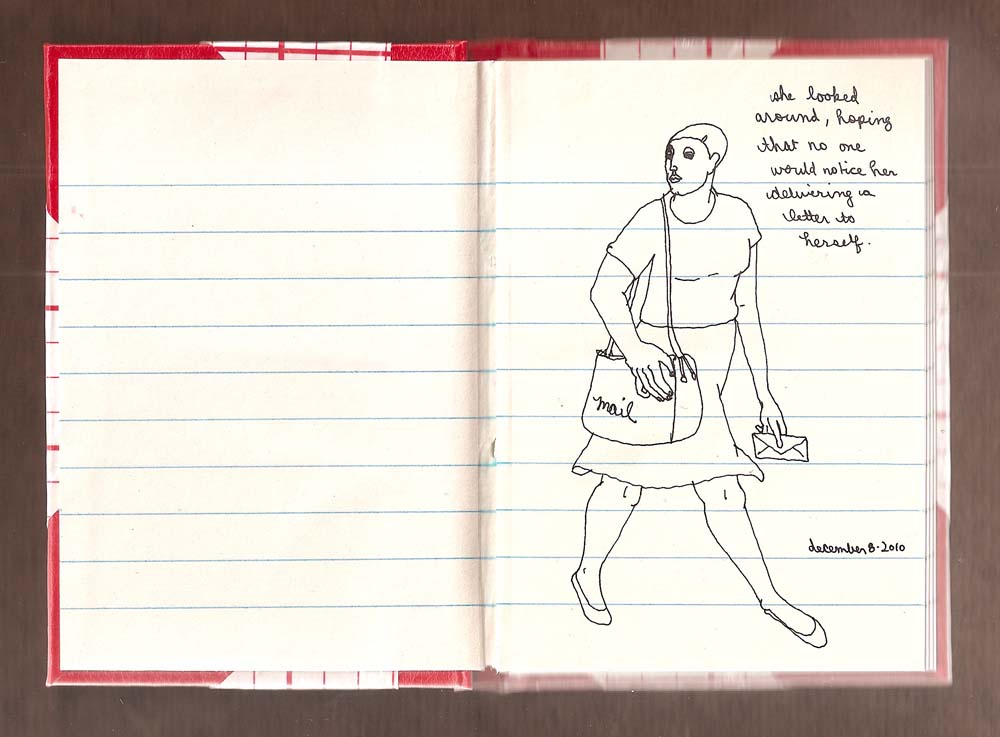 she looked
around, hoping
that no one
would notice her
delivering a
letter to
herself.
mail
december 8·2010